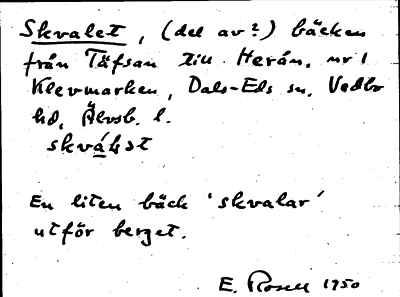 Skvalet, (del av?) bäcken
från Täfsan till Herån, nr 1
Klevmarken, Dals-Eds sn, Vedbo
hd, Älvsb. l.
En liten bäck 'skvalar'
utför berget.
E. Rosell 1950